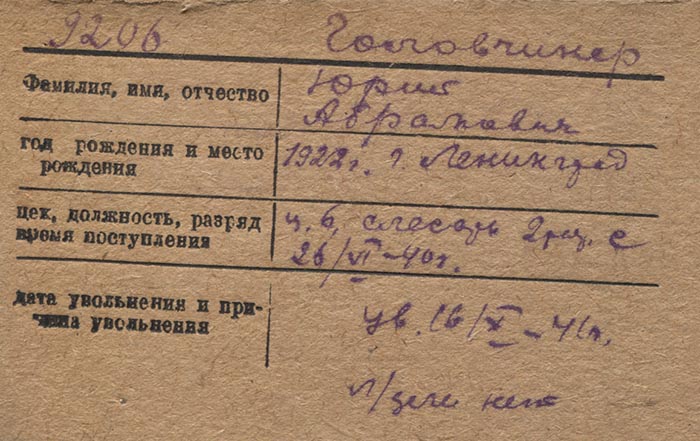 9206 Головчинер
Фамилия, имя, отчество Юрий
Абрамович
год рождения и место 1922г. г Ленинград
рождения
цех, должность, разряд ц. 6, слесарь 2 раз. с
время поступления 26/VI–40г.
дата увольнения и при-
чина увольнения ув. 16/X–41г.
л/дела нет